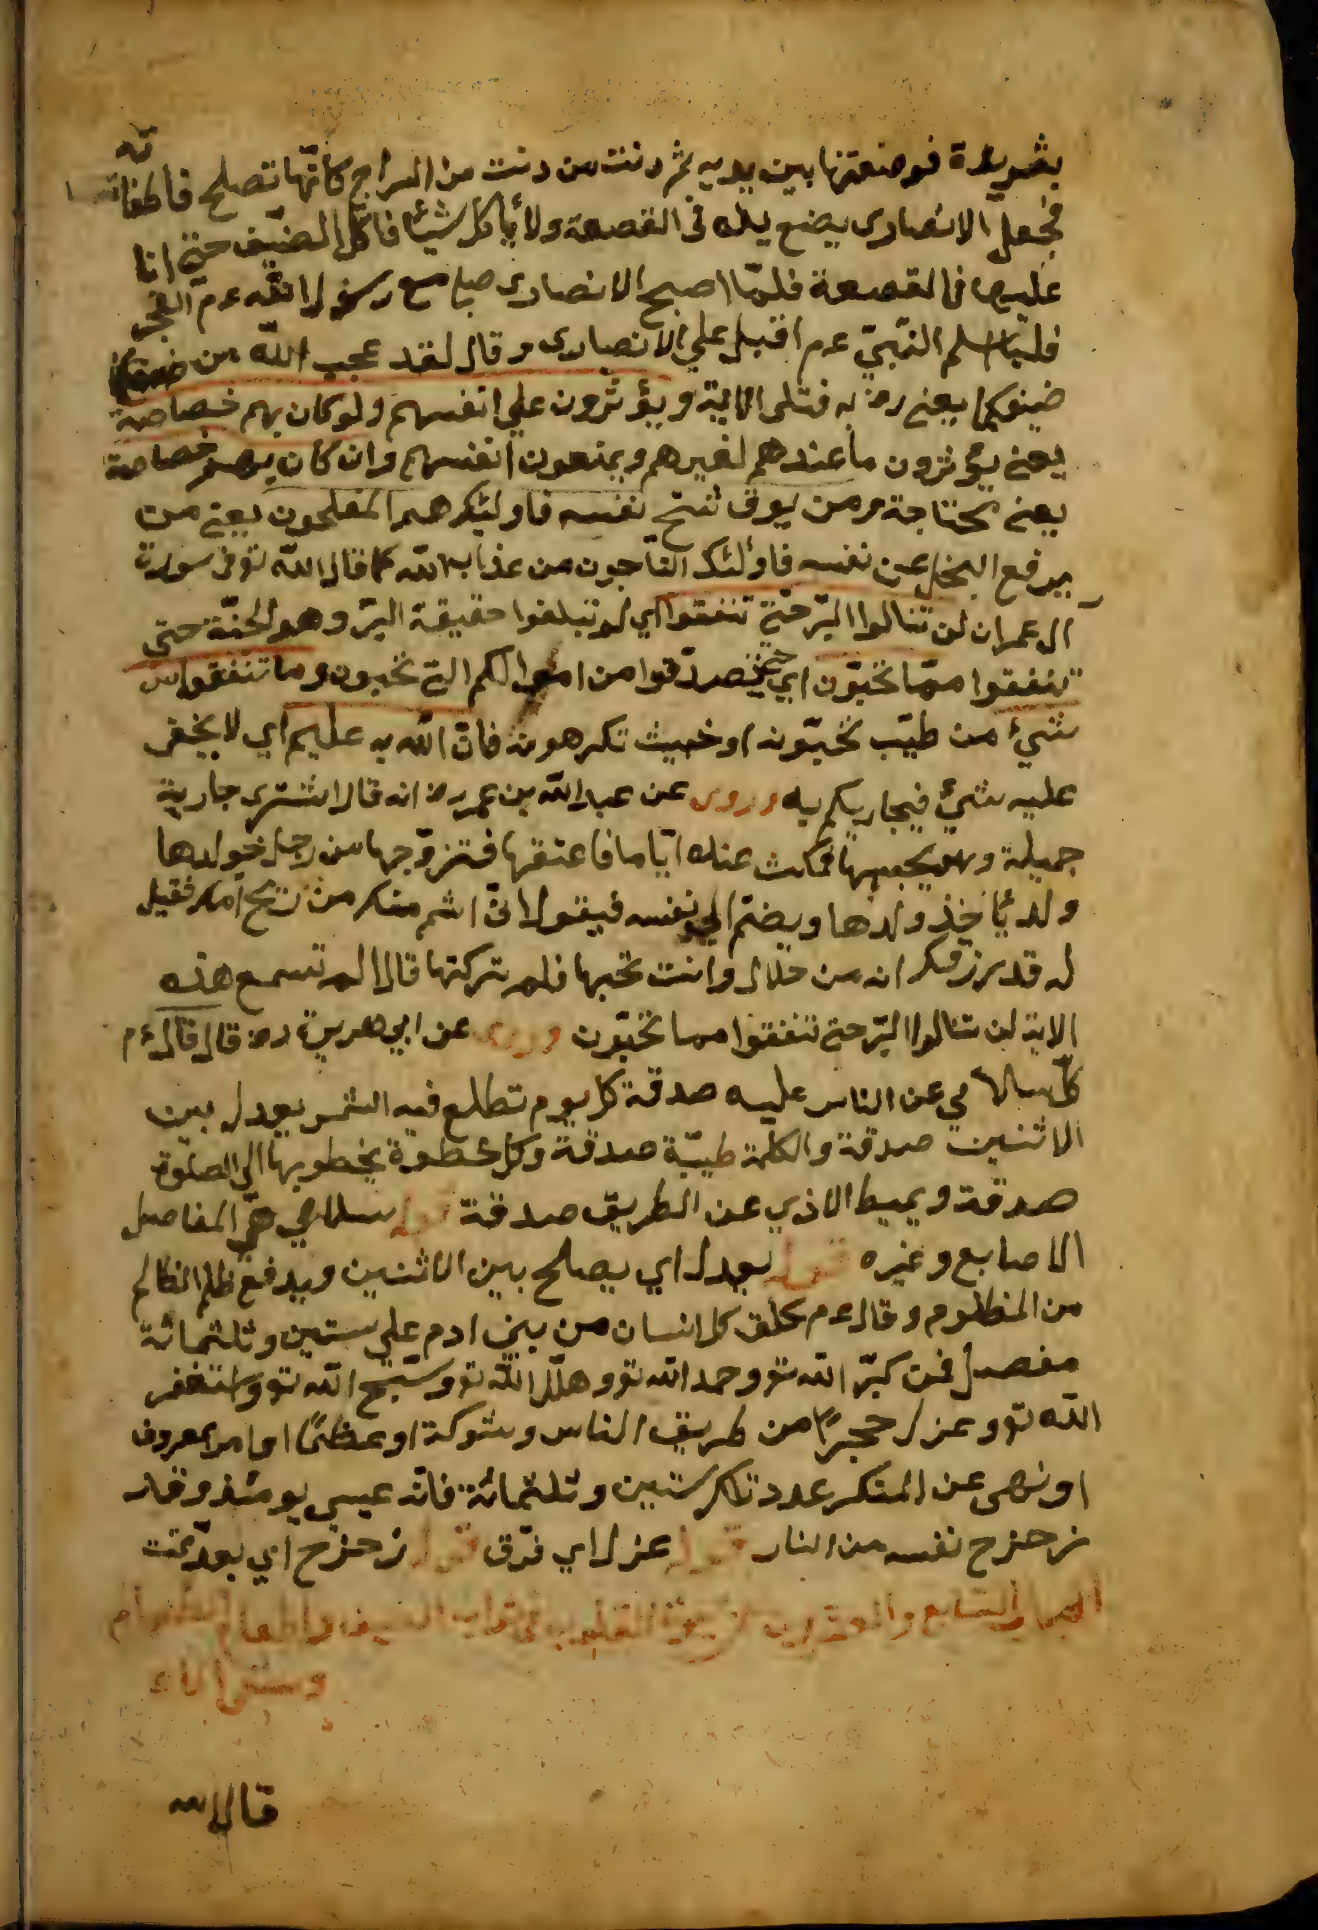 بثريدة فوضعتها بين يديه ثم دنت من دنت من السراج كانّها تصلح فاطفأته
فجعل الانصارى يضع يده فى القصعة ولا يأكل شيئا فاكل الضيف حتى اتا
عليها فى القصعة فلمّا اصبح الانصارى صلى مع رسول الله عم الفجر
فلمّا سلم النّبىّ عم اقبل على الانصارى وقال لقد عجب الله من
ضيفكما يعنى رض به فتلى الاية ويؤثرون على انفسهم ولو كان بهم خصاصة
يعنى يؤثرون ما عندهم لغيرهم ويمنعون انفسهم وان كان بهم خصاصة
يعنى محتاجة ومن يوق شح نفسه فاولئك هم المفلحون يعنى من
يرفع البخل عن نفسه فاولئك النّاجون من عذاب الله كما قال الله تع فى سورة
آل عمران لن تنالوا البرّ حتّى تنفقوا اى لن تبلغوا حقيقة البرّ وهو الجنّة حتى
تنفقوا ممّا تحبّون اى حتى تصدقوا من اموالكم التى تحبون وما تنفقوا من
شىء من طيّب تحبّونه او خبيث تكرهونه فانّ الله به عليم اى لا يخفى
عليه شىء فيجازيكم به وروى عن عبد الله بن عمر رض انه قال اشترى جارية
جميلة وهو يحبها فمكث عنده ايّاما فاعتقها فتزوّجها من رجل فولدها
ولد يأخذ ولدها ويضم الى نفسه فيقول انّى اشم منك من ريح امك فقيل
له قد رزقك الله من حلال وانت تحبها فلم تركتها قال الم تسمع هذه
الاية لن تنالوا البرّ حتى تنفقوا مما تحبّون وروى عن ابى هريرة رض قال قال عم
كلّ سلامى عن الناس عليه صدقة كل يوم تطلع فيه الشمس يعدل بين
الاثنين صدقة والكلمة طيبّة صدقة وكل خطوة يخطو بها الى الصلوة
صدقة ويميط الاذى عن الطريق صدقة قوله سلامى هى المفاصل
الاصابع وغيره قوله يعدل اى يصلح بين الاثنين ويدفع ظلم الظالم
من المظلوم وقال عم خلق كل انسان من بنى ادم على ستين وثلثمائة
مفصل فمن كبّر الله تع وحمد الله تع وهلّل الله تع وسبّح الله تع واستغفر
الله تع وعزل حجرًا من طريق الناس وشوكة او عظمًا او امر بمعروف
او نهى عن المنكر عدد تلك ستين وثلثمائة فانّه يومئذ وقد
زحزح نفسه من النار قوله عزل اى فرّق قوله زحزح اى بعد تمت
المجلس السابع والعشرين فى ثواب الضيف واطعام الطعام
وسقى الماء
قال الله